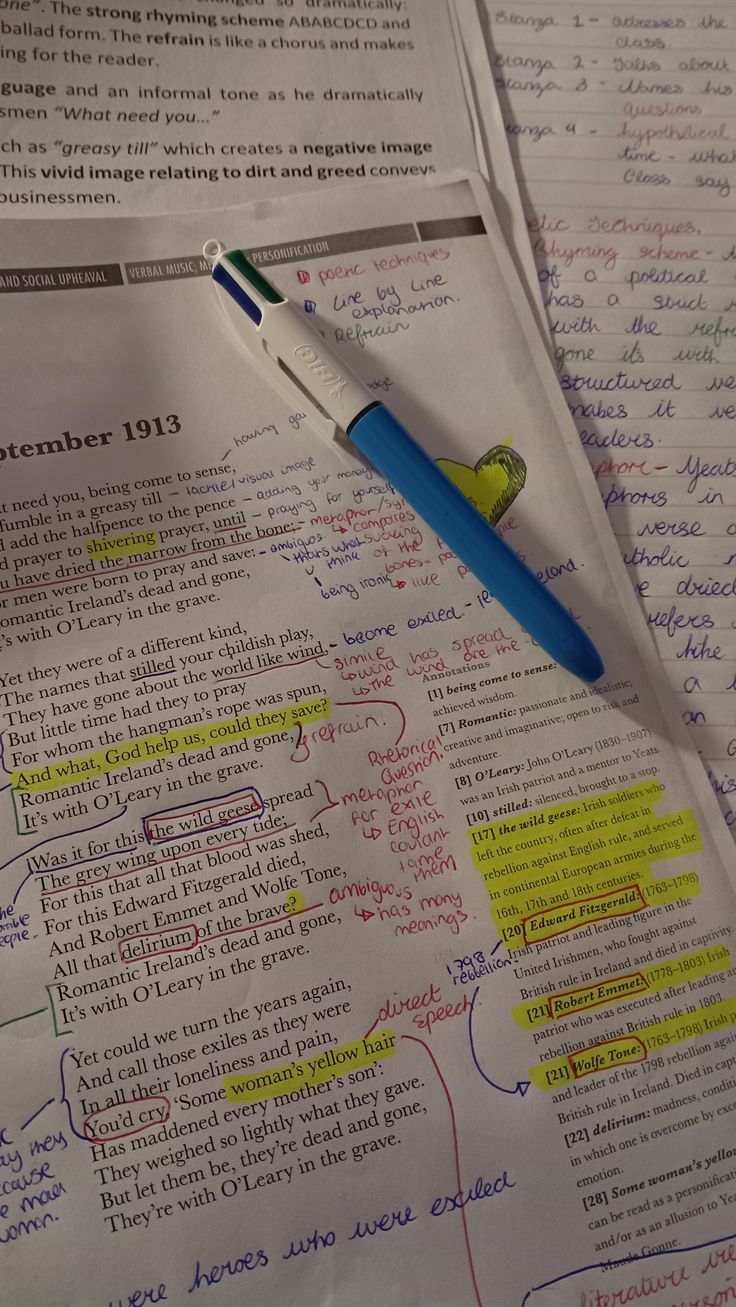 one". The strong rhyming scheme ABABCDCD and
ballad form. The refrain is like a chorus and makes
ing for the reader.
guage and an informal tone as he dramatically
smen "What need you..."
ch as "greasy till" which creates a negative image
This vivid image relating to dirt and greed conveys
businessmen.
Stanza 1 - adresses the
class.
Stanza 2 - Talks about
Stanza 3 - Names his
questions
Stanza 4 - hypothetical
time - what
Class say
etic Techniques.
Rhyming scheme -
of a political
has a strict
with the refr
gone its with
structured ve
makes it ve
eaders.
phore - Yeats
phors in
verse
tholic
e dried
refers
like
a
an
AND SOCIAL UPHEAVAL
VERBAL MUSIC; M PERSONIFICATION
poetic techniques
Line by Line
explanation.
Refrain
ptember 1913
having
t need you, being come to sense,
fumble in a greasy till - tactile/visual image
d add the halfpence to the pence - adding your money
d prayer to shivering prayer, until - praying for yourself
u have dried the marrow from the bone; - metaphor/
compares
r men were born to pray and save: - ambiguos
thats what
sucking
think
of the
bones
omantic Ireland's dead and gone,
being ironic
like
's with O'Leary in the grave.
Yet they were of a different kind,
The names that stilled your childish play, - become exiled -
They have gone about the world like wind,
simile
wind has spread
the wind are the
But little time had they to pray
For whom the hangman's rope was spun,
And what, God help us, could they save?
refrain!
Rhetorical
Question.
Romantic Ireland's dead and gone,
It's with O'Leary in the grave.
Was it for this the wild geese spread
metaphor
for exile
English
couldnt
tame
them
The grey wing upon every tide;
For this that all that blood was shed,
For this Edward Fitzgerald died,
And Robert Emmet and Wolfe Tone,
All that delirium of the brave?
ambiguous
has many
meanings.
Romantic Ireland's dead and gone,
It's with O'Leary in the grave.
1798
rebellion.
Yet could we turn the years again,
And call those exiles as they were
In all their loneliness and pain,
direct
speech.
You'd cry, 'Some woman's yellow hair
Has maddened every mother's son':
They weighed so lightly what they gave.
But let them be, they're dead and gone,
They're with O'Leary in the grave.
were heroes who were exiled
Annotations
[1] being come to sense:
achieved wisdom.
[7] Romantic: passionate and idealistic;
creative and imaginative; open to risk and
adventure.
[8] O'Leary: John O'Leary (1830–1907)
was an Irish patriot and a mentor to Yeats.
[10] stilled: silenced, brought to a stop.
[17] the wild geese: Irish soldiers who
left the country, often after defeat in
rebellion against English rule, and served
in continental European armies during the
16th, 17th and 18th centuries.
[20] Edward Fitzgerald: (1763–1798)
Irish patriot and leading figure in the
United Irishmen, who fought against
British rule in Ireland and died in captivity.
[21] Robert Emmet: (1778–1803) Irish
patriot who was executed after leading a
rebellion against British rule in 1803.
[21] Wolfe Tone: (1763–1798) Irish p
and leader of the 1798 rebellion agai
British rule in Ireland. Died in capt
[22] delirium: madness, condition
in which one is overcome by exce
emotion.
[28] Some woman's yellow
can be read as a personificati
and/or as an allusion to Yea
Maude Gonne.
literature